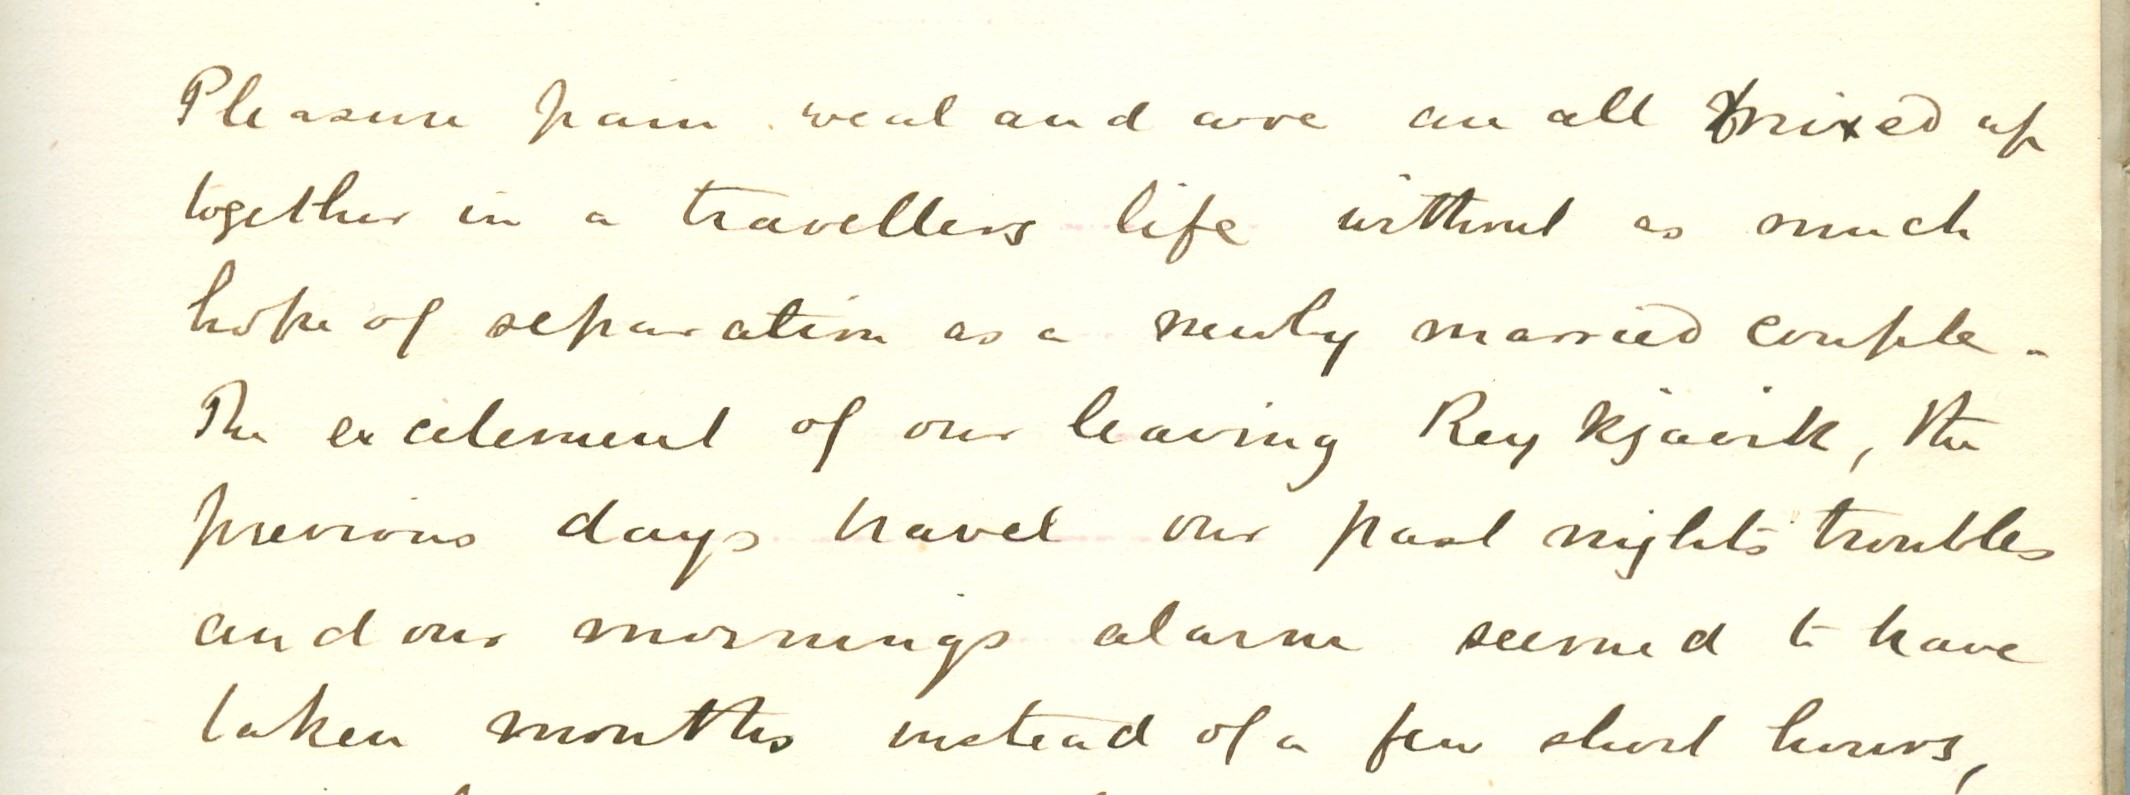 Pleasure pain weal and woe are all mixed up
together in a travellers life without as much
hope of separation as a newly married couple.
The excitement of our leaving Reykjavik, the
previous days travel our past nights troubles
and our mornings alarm seemed to have
taken months instead of a few short hours,